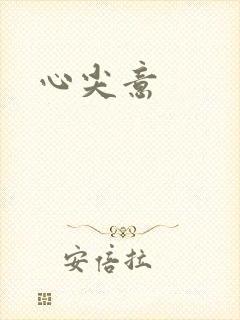 心尖意
安倍拉